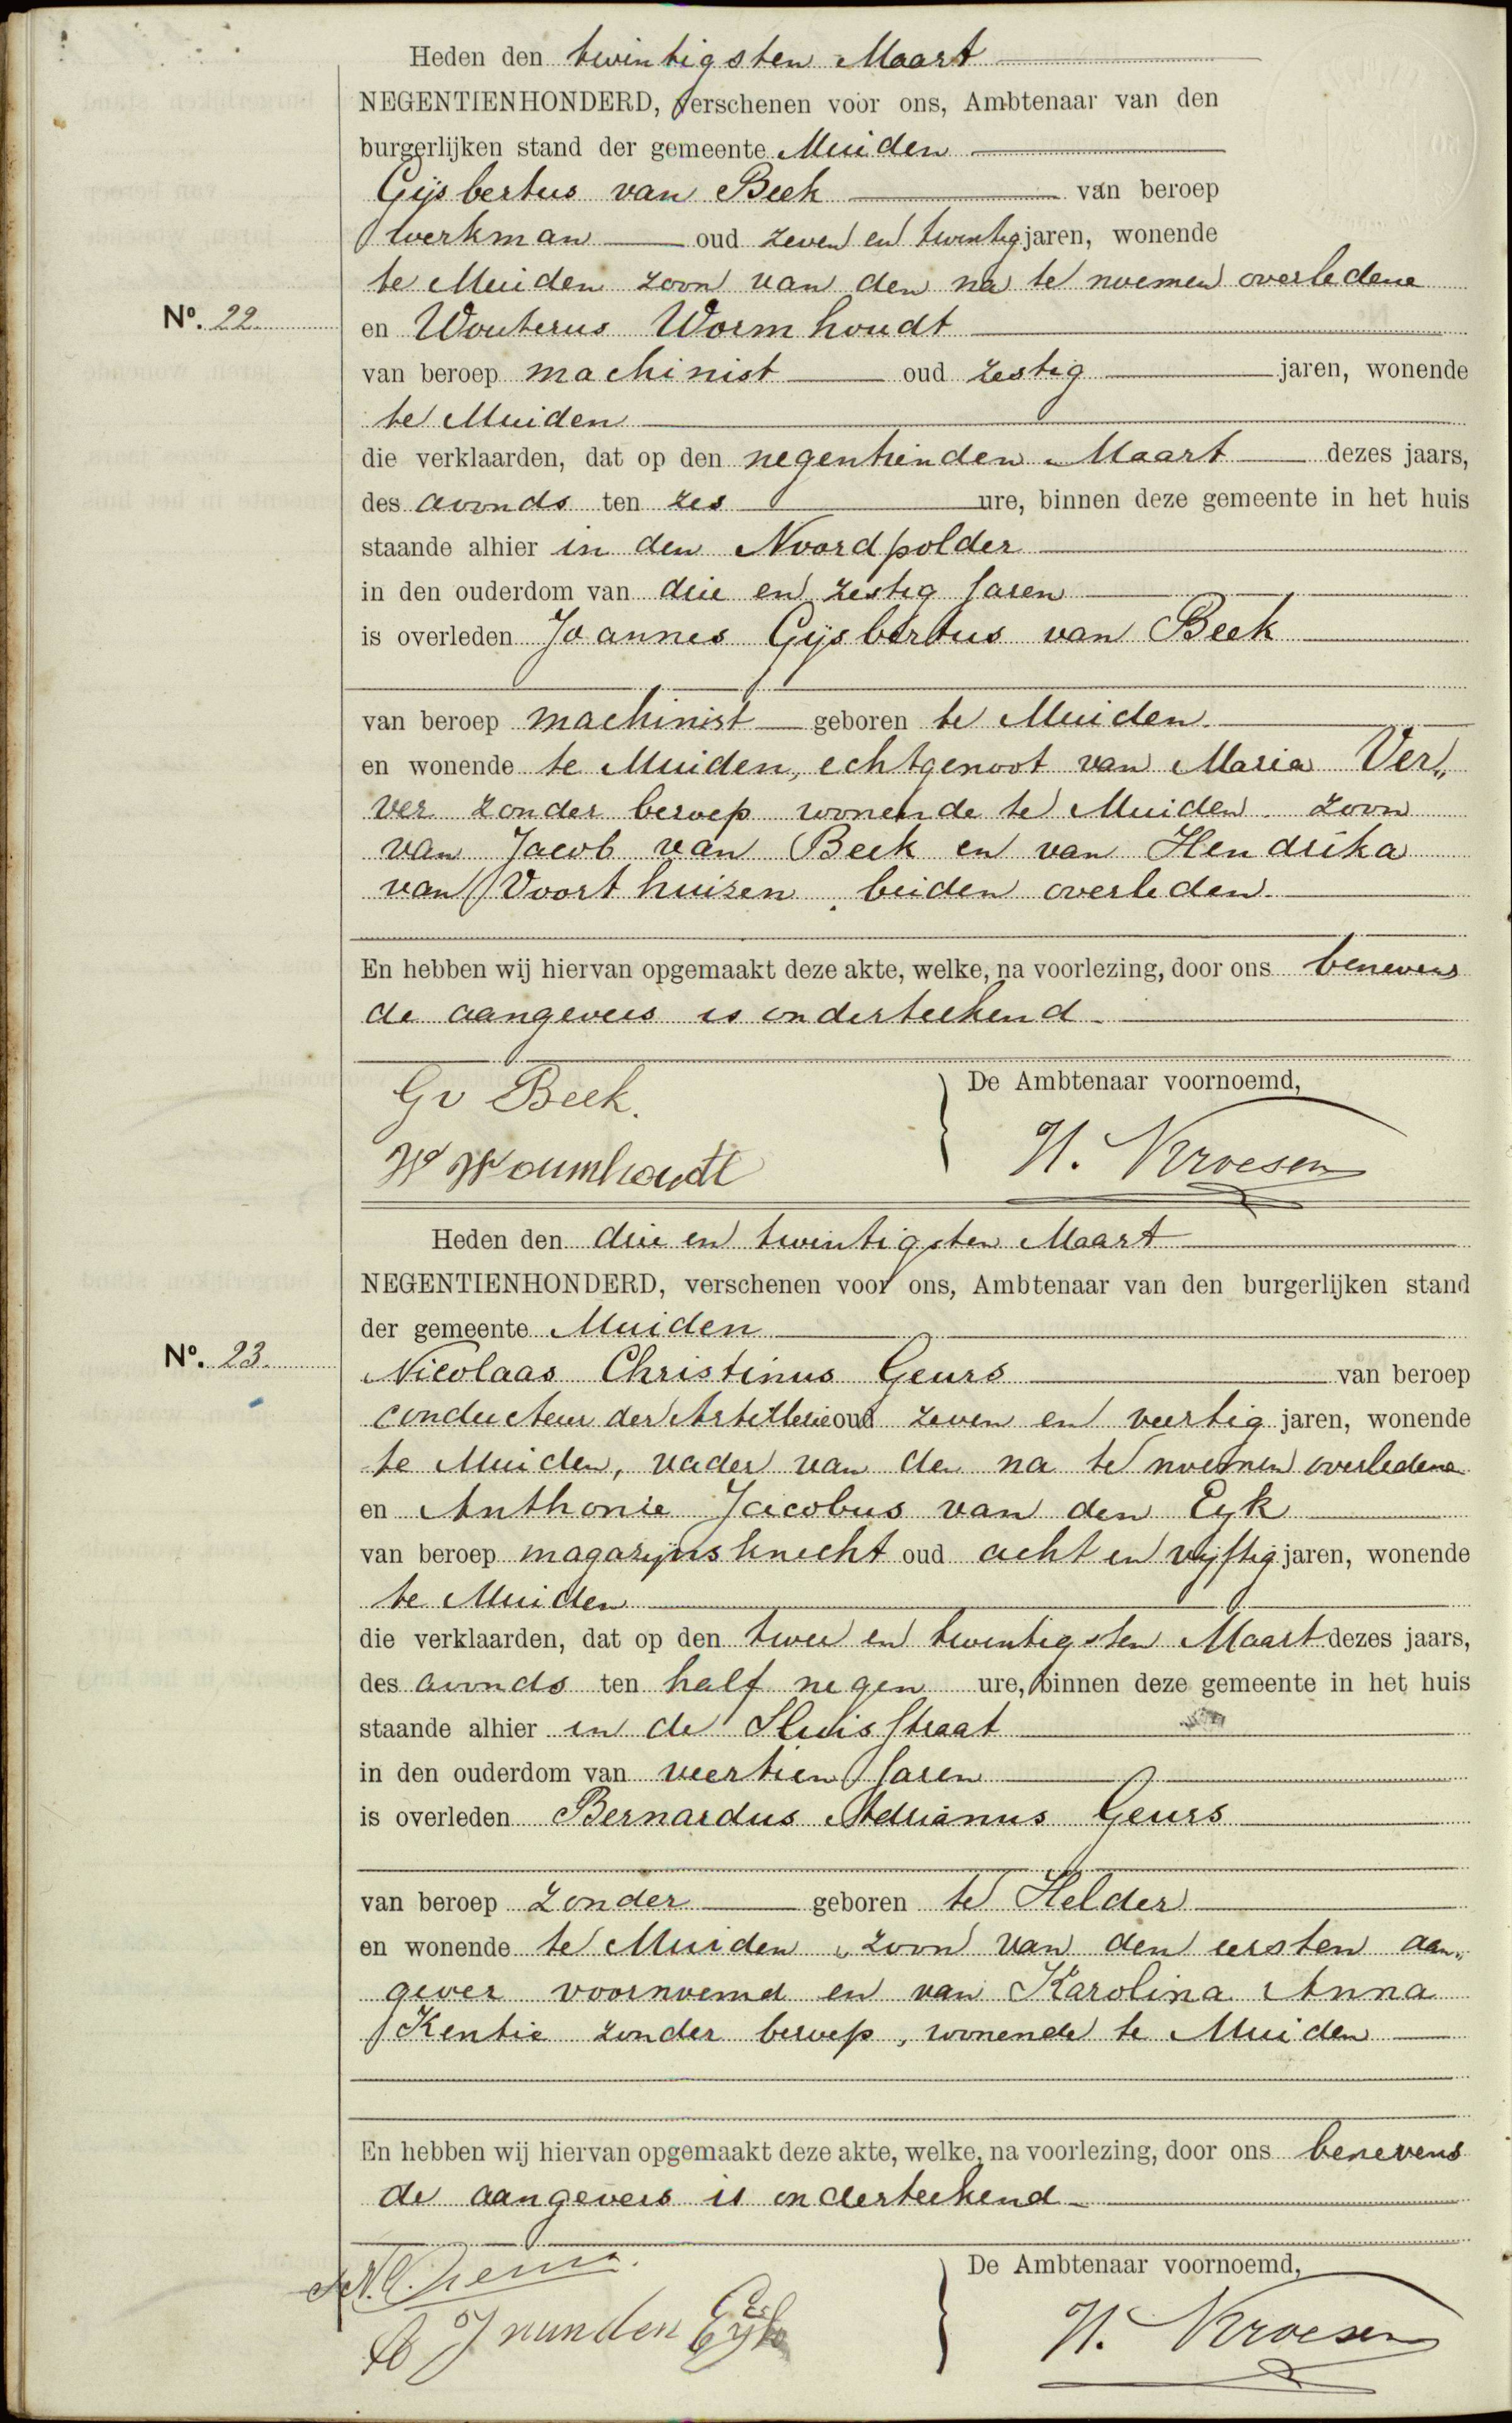 Heden den twintigsten Maart
NEGENTIENHONDERD, verschenen voor ons, Ambtenaar van den
burgerlijken stand der gemeente Muiden
Gijsbertus van Beek van beroep
werkman oud zeven en twintig jaren, wonende
te Muiden zoon van den na te noemen overledene
No. 22. en Wouterus Wormhoudt
van beroep machinist oud zestig jaren, wonende
te Muiden
die verklaarden, dat op den negentienden Maart dezes jaars,
des avonds ten zes ure, binnen deze gemeente in het huis
staande alhier in den Noordpolder
in den ouderdom van drie en zestig jaren
is overleden Joannes Gijsbertus van Beek
van beroep machinist geboren te Muiden.
en wonende te Muiden, echtgenoot van Maria Ver„
ver zonder beroep wonende te Muiden. zoon
van Jacob van Beek en van Hendrika
van Voorthuizen, beiden overleden.
En hebben wij hiervan opgemaakt deze akte, welke, na voorlezing, door ons benevens
de aangevers is onderteekend.
De Ambtenaar voornoemd,
Gv Beek.
W Wormhoudt
H. Kroesen
Heden den drie en twintigsten Maart
NEGENTIENHONDERD, verschenen voor ons, Ambtenaar van den burgerlijken stand
der gemeente Muiden
No. 23. Nicolaas Christinus Geurs van beroep
conducteur der Artillerie oud zeven en veertig jaren, wonende
te Muiden, vader van den na te noemen overledene
en Anthonie Jacobus van den Eyk
van beroep magazijnsknecht oud acht en vijftig jaren, wonende
te Muiden
die verklaarden, dat op den twee en twintigsten Maart dezes jaars,
des avonds ten half negen ure, binnen deze gemeente in het huis
staande alhier in de Sluisstraat
in den ouderdom van veertien jaren
is overleden Bernardus Adrianus Geurs
van beroep zonder geboren te Helder
en wonende te Muiden, zoon van den eersten aan„
gever voornoemd en van Karolina Anna
Kentie zonder beroep, wonende te Muiden
En hebben wij hiervan opgemaakt deze akte, welke, na voorlezing, door ons benevens
de aangevers is onderteekend.
De Ambtenaar voornoemd,
N.C. Geurs.
A J van den Eyk
H. Kroesen